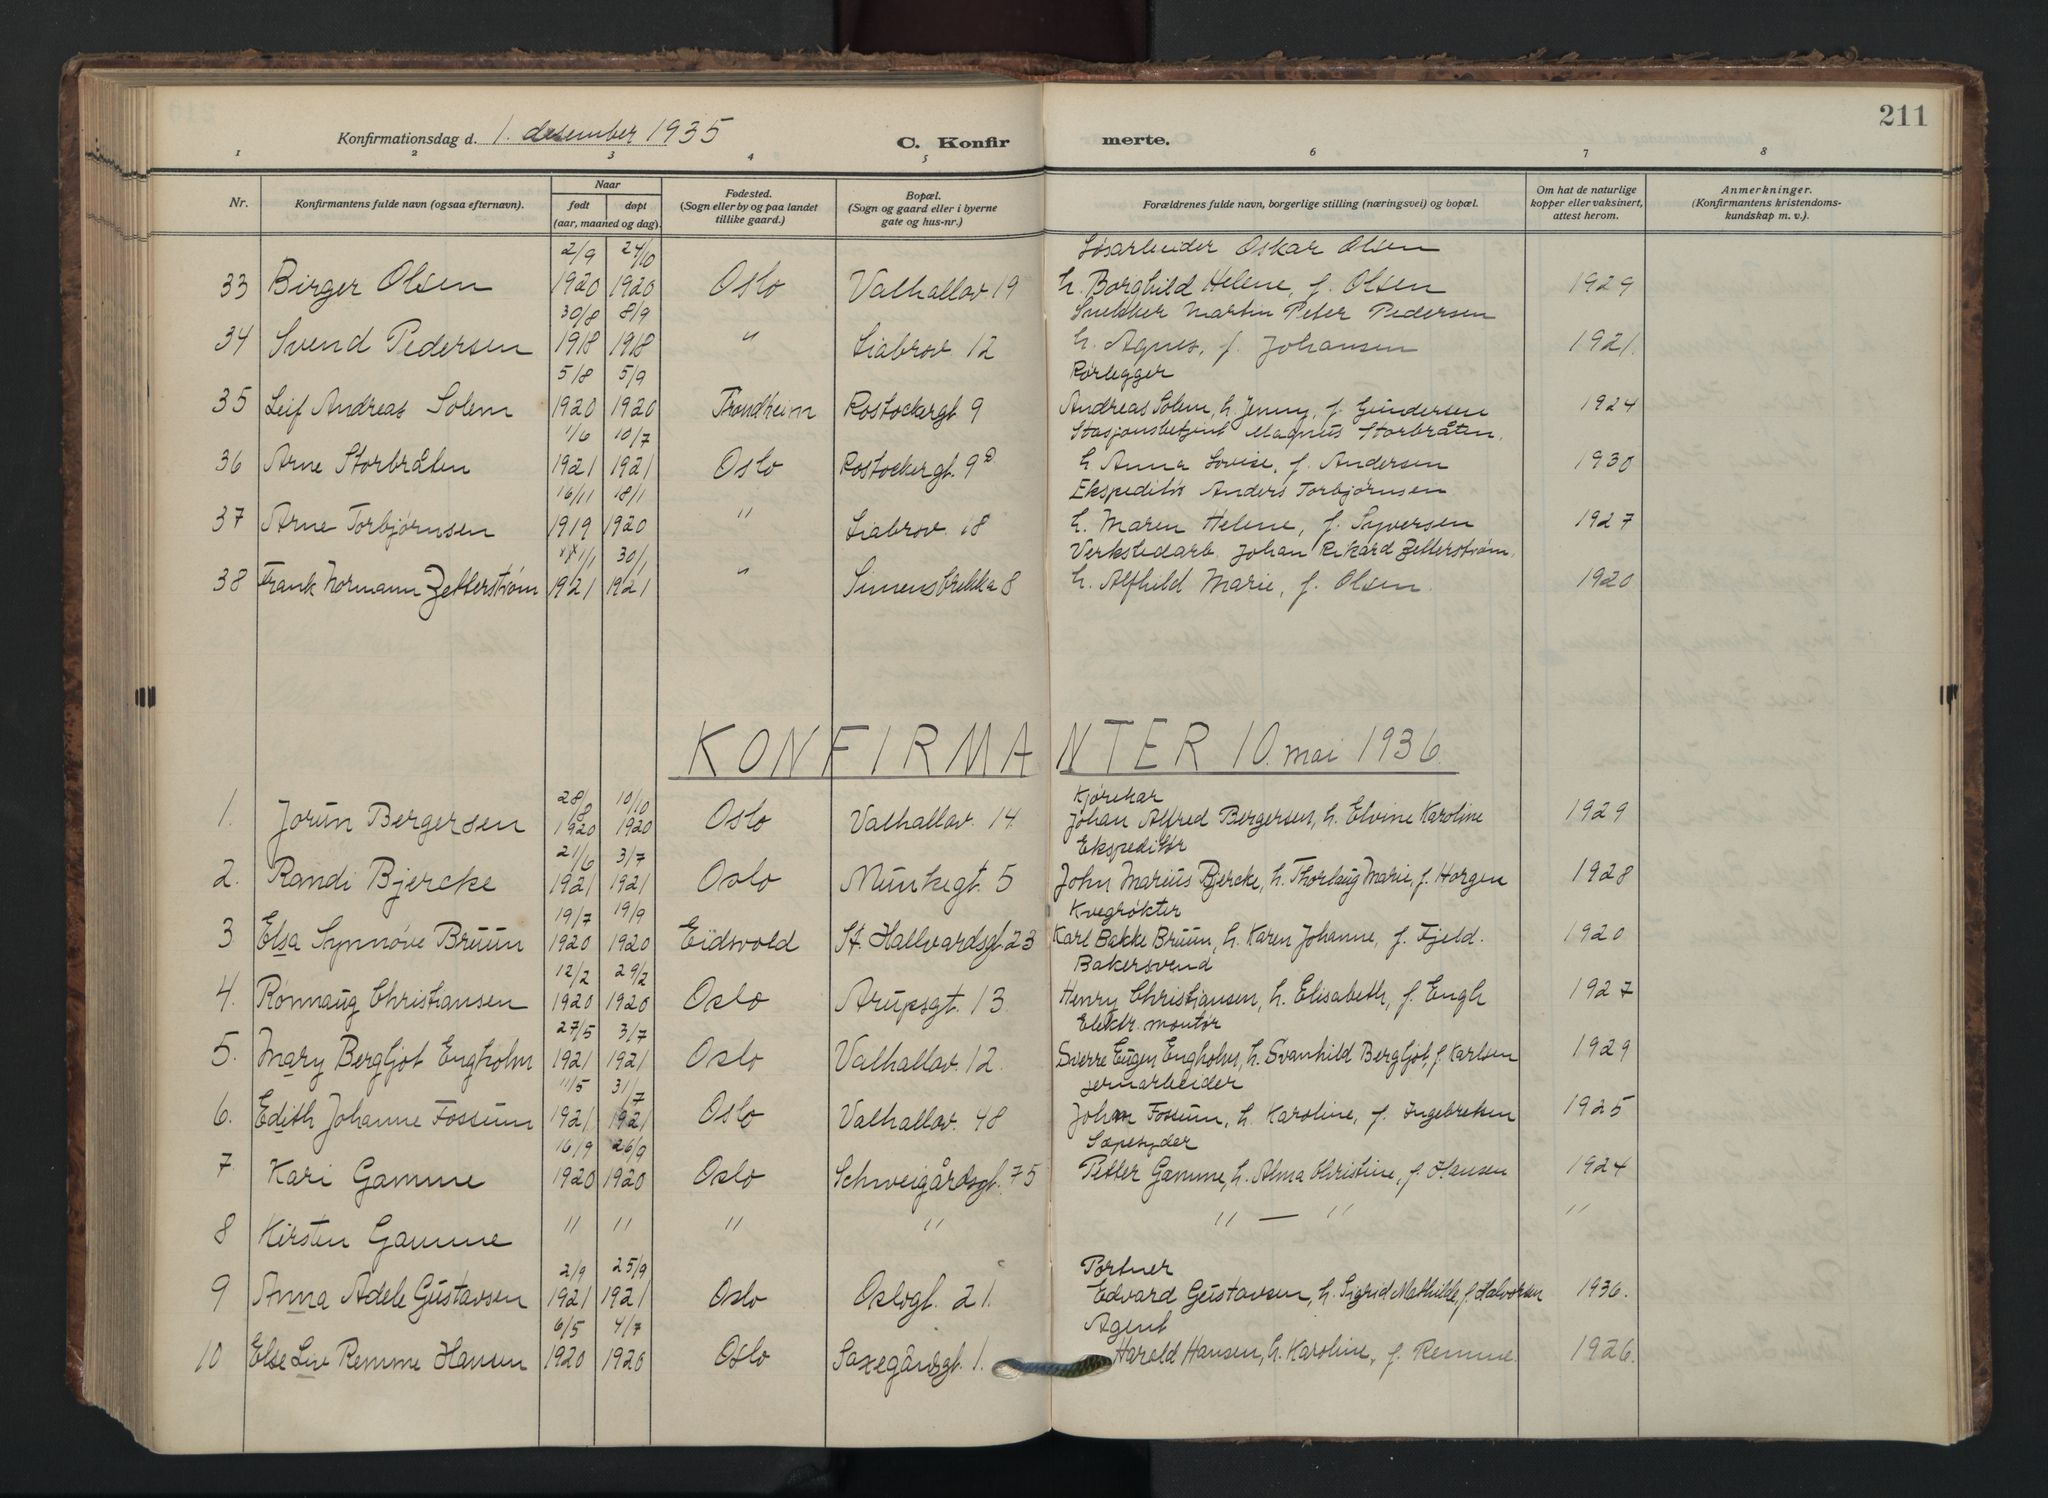 211
Konfirmationsdag d. 1. desember 1935 C. Konfirmerte.
1 2 3 4 5 6 7 8
Nr. Konfirmantens fulde navn (ogsaa efternavn). Naar født døpt (aar, maaned og dag) Fødested. (Sogn eller by og paa landet tillike gaard.) Bopæl. (Sogn og gaard eller i byerne gate og hus-nr.) Forældrenes fulde navn, borgerlige stilling (næringsvei) og bopæl. Om hat de naturlige kopper eller vaksinert, attest herom. Anmerkninger. (Konfirmantens kristendoms-kundskap m. v.)
2/9 24/10 Løsarbeider Oskar Olsen
33 Birger Olsen 1920 1920 Oslo Valhallav. 19 h. Borghild Helene, f. Olsen 1929
30/8 8/9 Snekker Martin Peter Pedersen
34 Svend Pedersen 1918 1918 " Liabrov. 12 h. Agnes, f. Johansen 1921.
5/8 5/9 Rørlegger
35 Leif Andreas Solem 1920 1920 Trondheim Rostockergt. 9 Andreas Solem, h. Jenny, f. Gundersen 1924
1/6 10/7 Stasjonsbetjent Magnus Storbråten.
36 Arne Storbråten 1921 1921 Oslo Rostockergt. 9 h. Anna Lovise, f. Andersen 1930
16/11 18/1 Ekspeditør Anders Torbjørnsen
37 Arne Torbjørnsen 1919 1920 " Liabrov. 18 h. Maren Helene, f. Syversen 1927
1/1 30/1 Verkstedarb. Johan Rikard Zetterstrøm.
38 Frank Normann Zetterstrøm 1921 1921 " Simensbrekka 8 h. Alfhild Marie, f. Olsen. 1920
KONFIRMANTER 10. mai 1936
28/8 10/10 Kjørekar
1. Jorun Bergersen 1920 1920 Oslo Valhallav. 14. Johan Alfred Bergersen, h. Elvine Karoline 1929
21/6 3/7 Ekspeditør
2. Randi Bjercke 1921 1921 Oslo Munkegt. 5 John Marius Bjercke, h. Thorlaug Marie, f. Horgen 1928
19/7 19/9 Kvegrøkter
3 Elsa Synnøve Bruun 1920 1920 Eidsvold St. Hallvardsgt. 23 Karl Bakke Bruun, h. Karen Johanne, f. Fjeld. 1920
12/2 29/2 Bakersvend
4. Rønnaug Christiansen 1920 1920 Oslo Arupsgt. 13 Henry Christiansen, h. Elisabeth, f. Engh 1927
27/5 3/7 Elektr. montør
5. Mary Bergljot Engholm 1921 1921 Oslo Valhallav. 12. Sverre Eugen Engholm, h. Svanhild Bergljot, f. Karlsen 1929
11/5 31/7 jernarbeider
6. Edith Johanne Fossum 1921 1921 Oslo Valhallav. 48 John Fossum, h. Karoline, f. Ingebretsen 1925
16/9 26/9 Sæpesyder
7 Kari Gamme 1920 1920 Oslo Schweigårdsgt. 75 Petter Gamme, h. Alma Christine, f. Hansen 1924
8 Kirsten Gamme " " " " " — " "
2/9 25/9 Portner
9 Anna Adele Gustavsen 1921 1921 Oslo Oslogt. 21. Edvard Gustavsen, h. Sigrid Mathilde, f. Halvorsen 1936.
6/5 4/7 Agent
10 Else Liv Remme Hansen 1920 1920 Oslo Saxegårdsgt. 1. Harald Hansen, h. Karoline, f. Remme. 1926.